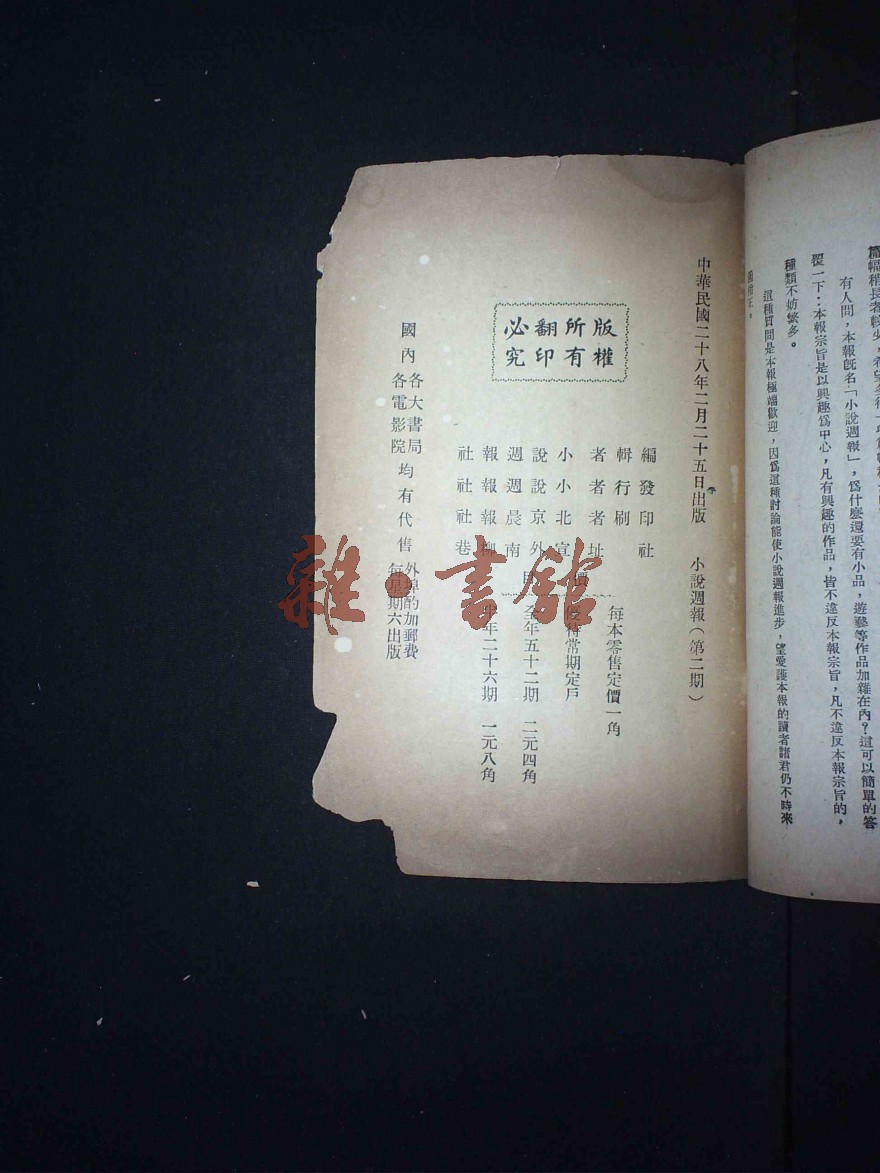 篇幅稍長者較少，希望多得
有人問，本報旣名「小說週報」，爲什麼還要有小品，遊藝等作品加雜在內？這可以簡單的答
覆一下：本報宗旨是以興趣爲中心，凡有興趣的作品，皆不違反本報宗旨，凡不違反本報宗旨的，
種類不妨繁多。
這種質問是本報極端歡迎，因爲這種討論能使小說週報進步，望愛護本報的讀者諸君仍不時來
指正。
中華民國二十八年二月二十五日出版　小說週報（第二期）
編輯者　小說週報社
發行者　小說週報社
印刷者　北京晨報社
社址　宣外南柳巷
每本零售定價一角
優待常期定戶
全年五十二期　二元四角
半年二十六期　一元八角
版權所有
翻印必究
國內各大書局各電影院均有代售
外埠酌加郵費
每星期六出版
雜·書館